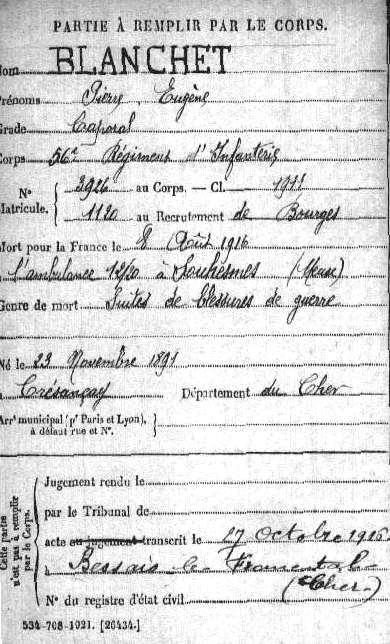 PARTIE À REMPLIR PAR LE CORPS.
Nom BLANCHET
Prénoms Pierre, Eugène
Grade Caporal
Corps 56e Régiment d'Infanterie
N° Matricule. { 3926 au Corps. — Cl. 1911
1120 au Recrutement de Bourges
Mort pour la France le 8 Août 1916
à l'ambulance 12/20 à Souhesmes (Meuse)
Genre de mort Suites de blessures de guerre
Né le 23 Novembre 1891
à Crésançay Département du Cher
Arrt municipal (pr Paris et Lyon),
à défaut rue et N°.
Cette partie n'est pas à remplir par le Corps.
Jugement rendu le
par le Tribunal de
acte ou jugement transcrit le 17 octobre 1916
à Bessais le Fromental
(Cher)
N° du registre d'état civil
534-708-1921. [26434.]